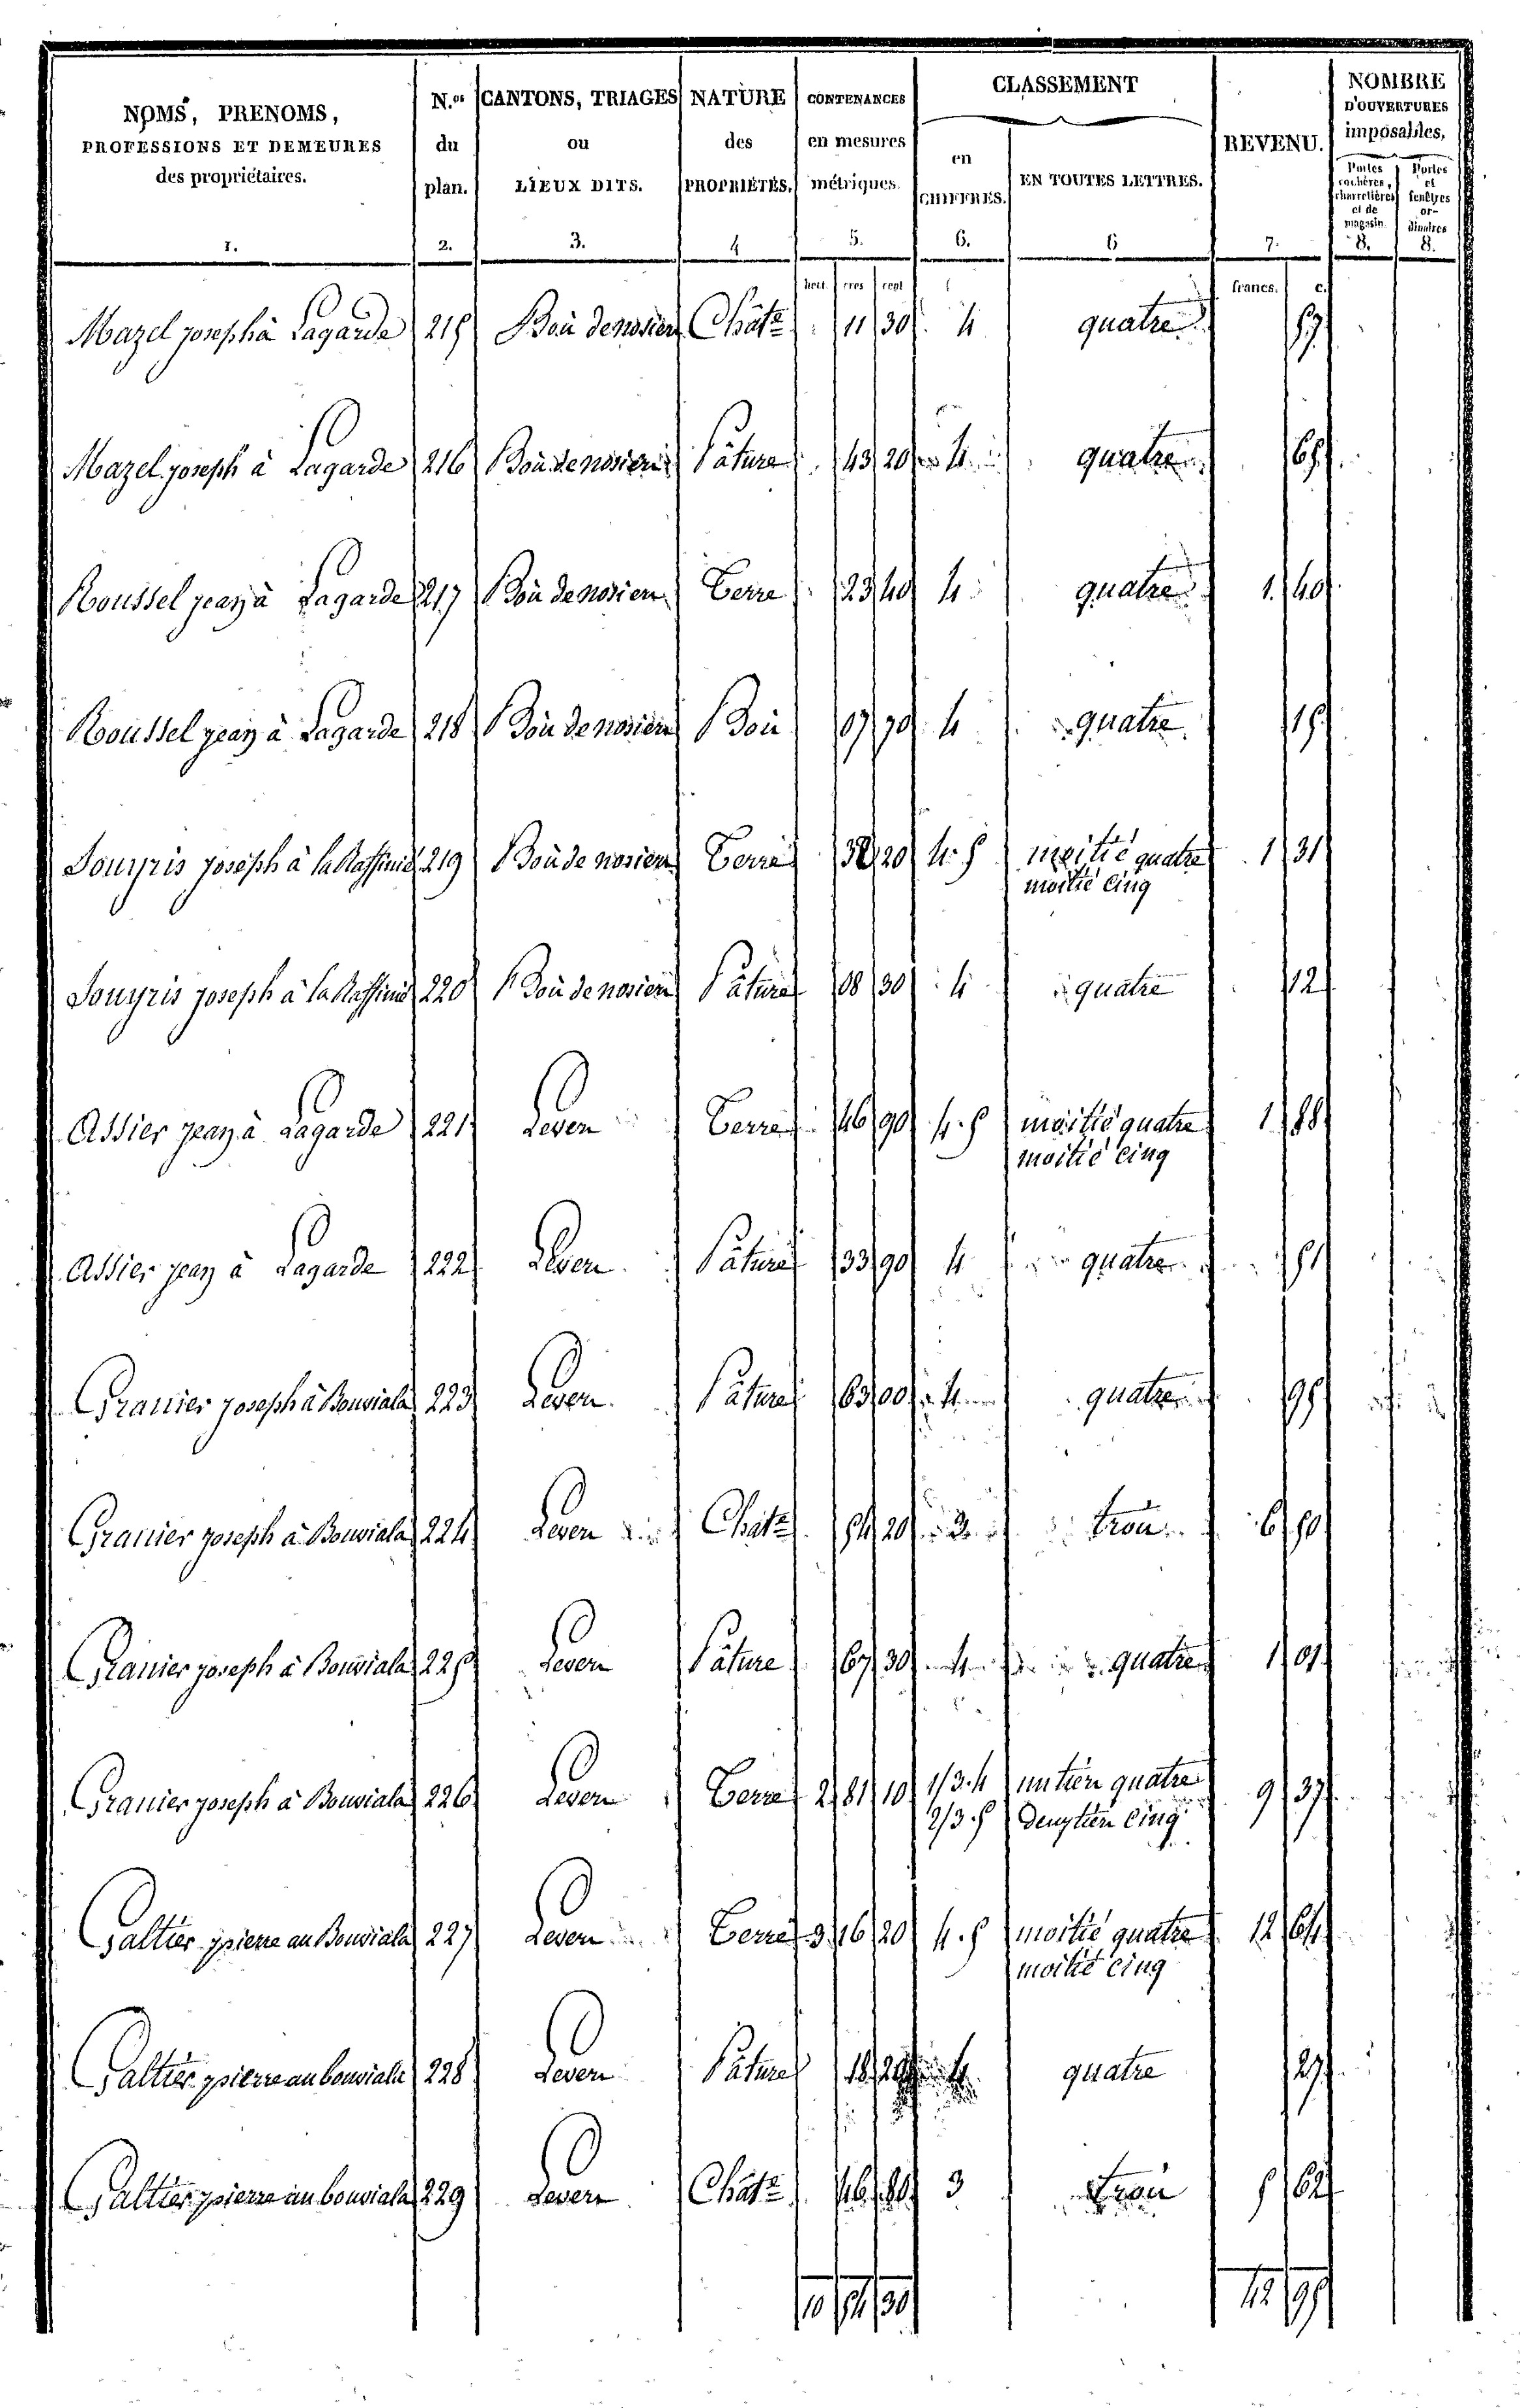 NOMS, PRENOMS,
PROFESSIONS ET DEMEURES
des propriétaires.
1.
N.os
du
plan.
2.
CANTONS, TRIAGES
ou
LIEUX DITS.
3.
NATURE
des
PROPRIÉTÉS.
4
CONTENANCES
en mesures
métriques.
5.
CLASSEMENT
en
CHIFFRES.
6.
EN TOUTES LETTRES.
6
REVENU.
7.
NOMBRE
D'OUVERTURES
imposables,
Portes cochères, charretières et de magasin.
8.
Portes et fenêtres ordinaires
8.
hect. ares cent. francs. c.
Mazel joseph à Lagarde 215 Bois de nosiere Chât.e 11 30 4 quatre 57
Mazel joseph à Lagarde 216 Bois de nosiere Pâture 43 20 4 quatre 65
Roussel jean à Lagarde 217 Bois de nosiere Terre 23 40 4 quatre 1 40
Roussel jean à Lagarde 218 Bois de nosiere Bois 07 70 4 quatre 15
Souyris joseph à la Raffinie 219 Bois de nosiere Terre 32 80 4.5 moitié quatre 1 31
moitié cinq
Souyris joseph à la Raffinie 220 Bois de nosiere Pâture 08 30 4 quatre 12
Assier jean à Lagarde 221 Leven Terre 46 90 4.5 moitié quatre 1 88
moitié cinq
Assier jean à Lagarde 222 Leven Pâture 33 90 4 quatre 51
Granier joseph à Bouviala 223 Leven Pâture 63 00 4 quatre 95
Granier joseph à Bouviala 224 Leven Chat.e 54 20 3 trois 6 50
Granier joseph à Bouviala 225 Leven Pâture 67 30 4 quatre 1 01
Granier joseph à Bouviala 226 Leven Terre 2 81 10 1/3.4 un tiers quatre 9 37
2/3.5 deux tiers cinq
Galtier pierre au Bouviala 227 Leven Terre 3 16 20 4.5 moitié quatre 12 64
moitié cinq
Galtier pierre au bouviala 228 Leven Pâture 18 20 4 quatre 27
Galtier pierre au bouviala 229 Leven Chât.e 46 80 3 trois 5 62
10 54 30 42 95